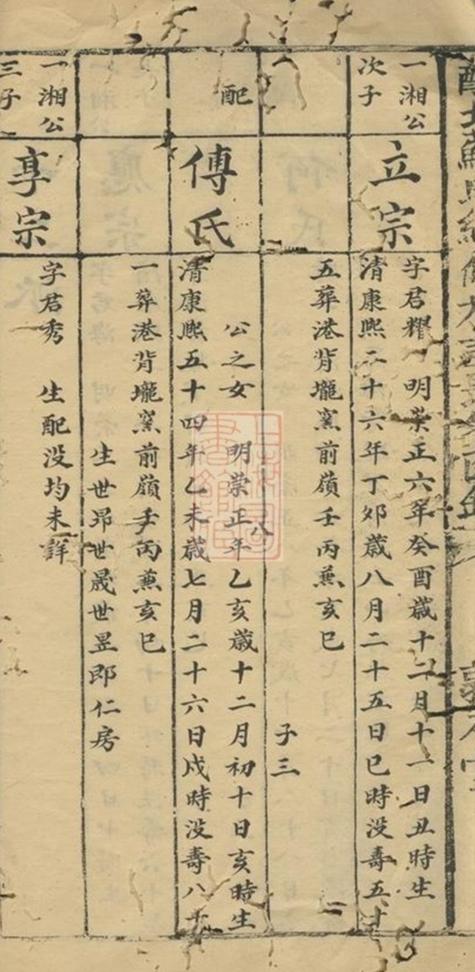 一湘公
次子
立宗
字君耀 明崇正六年癸酉歲十二月十一日丑時生
清康熙二十六年丁夘歲八月二十五日巳時没壽五十
五葬港背壠窯前嶺壬丙兼亥巳
子三
配
傅氏
公之女 明崇正八年乙亥歲十二月初十日亥時生
清康熙五十四年乙未歲七月二十六日戍時没壽八十
一葬港背壠窯前嶺壬丙兼亥巳
生世昻世晟世昱郎仁房
一湘公
三子
享宗
字君秀 生配没均未詳